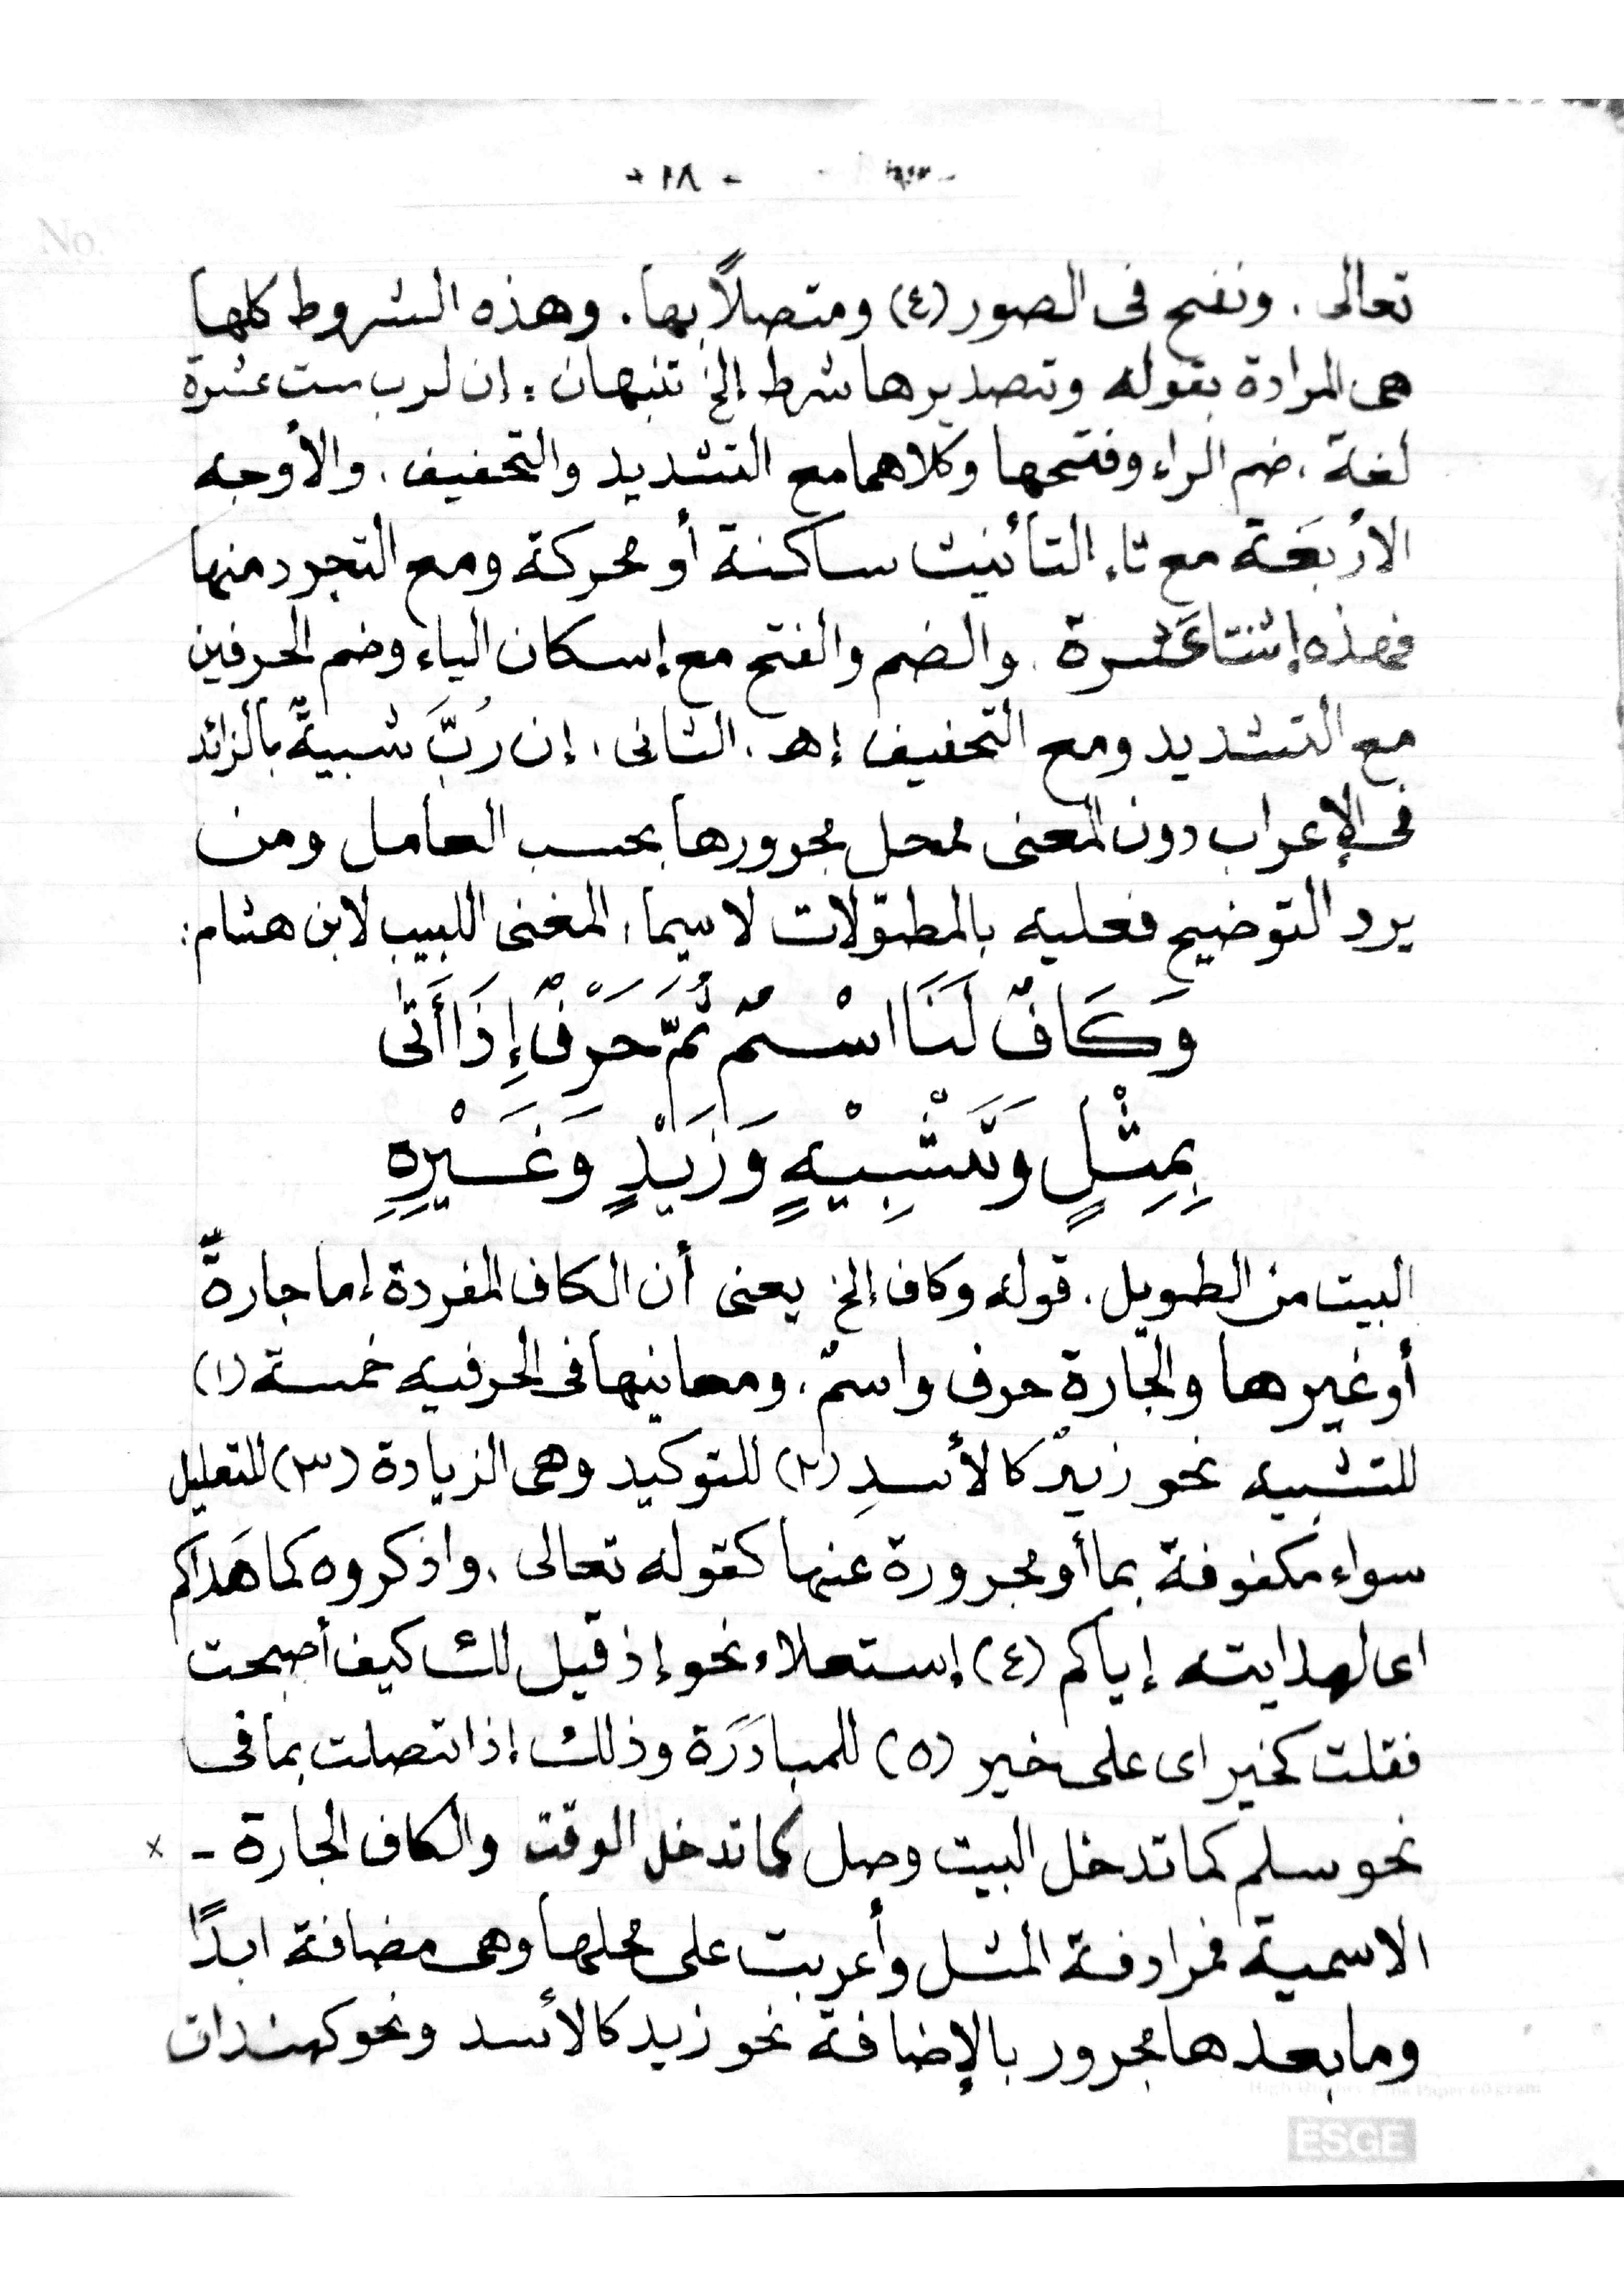 - ١٨ -
تعالى . ونفخ فى الصور (٤) ومتصلاً بها . وهذه الشروط كلها
هى المرادة بقوله وتصديرها شرط إلخ تنبهان : إن لرب ست عشرة
لغة . ضم الراء وفتحها وكلاهما مع التشديد والتخفيف . والأوجه
الأربَعَة مع تاء التأنيث ساكنة أو محركة ومع التجرد منها
فهذه إثنتا عَشرة . والضم والفتح مع إسكان الباء وضم الحرفين
مع التشديد ومع التخفيف إهـ . الثانى . إن رُبَّ شبيةٌ بالزائد
فى الإعراب دون المعنى لمحل مجرورها بحسب العامل ومن
يرد التوضيح فعليه بالمطوّلات لاسيما ، المغنى اللبيب لابن هشام :
وَكَافٌ لَنَا اسْمٌ ثُمَّ حَرْفٌ إِذَا أَتَى
بِمِثْلٍ وَتَشْبِيْهٍ وَزَيْدٍ وَغَيْرِهِ
البيت من الطويل . قوله وكاف إلخ يعنى أن الكاف المفردة إما جارةٌ
أو غيرها والجارة حرف واسمٌ . ومعانيها فى الحرفيه خمسة (١)
للتشبيه نحو زيدٌ كالأسدِ (٢) للتوكيد وهى الزيادة (٣) للتعليل
سواء مكفوفة بما أو مجرورة عنها كقوله تعالى . واذكروه كما هَداكم
اى لهدايته إياكم (٤) إستعلاء نحو إذ قيل لك كيف أصبحت
فقلت كخير اى على خير (٥) للمبادَرَة وذلك إذا تصلت بما فى
نحو سلم كما تدخل البيت وصل كما تدخل الوقت والكاف الجارة - x
الاسمية فمرادفة المثل وأعربت على محلها وهى مضافة ابدًا
وما بعدها مجرور بالإضافة نحو زيد كالأسد ونحو كهندات
ESGE